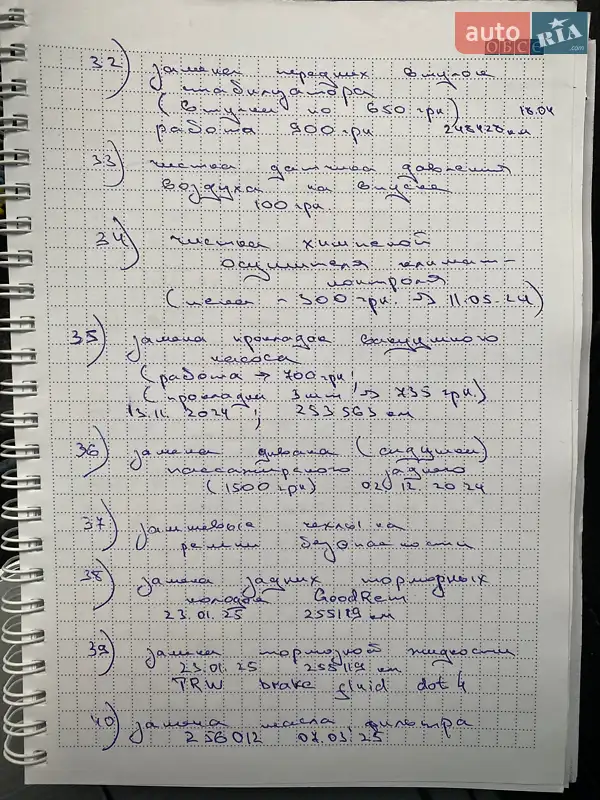 auto RIA.com
32) замена передних втулок
стабилизатора
(втулки по 650 грн) 18.04
работа 900 грн 248428 км
33) чистка датчика давления
воздуха на впуске
100 грн.
34) чистка химией
осушителя климат-
контроля
(пена - 300 грн. → 11.05.24)
35) замена прокладок вакуумного
насоса
(работа → 700 грн;
(прокладки 3 шт → 735 грн.)
13.11.2024; 253563 км
36) замена дивана (сидушки)
пассажирского заднего
(1500 грн) 02.12.2024
37) замшевые чехлы на
ремни безопасности
38) замена задних тормозных
колодок GoodRem
23.01.25 255119 км
39) замена тормозной жидкости
23.01.25 255119 км
TRW brake fluid dot 4
40) замена масла, фильтра
256012 07.03.25